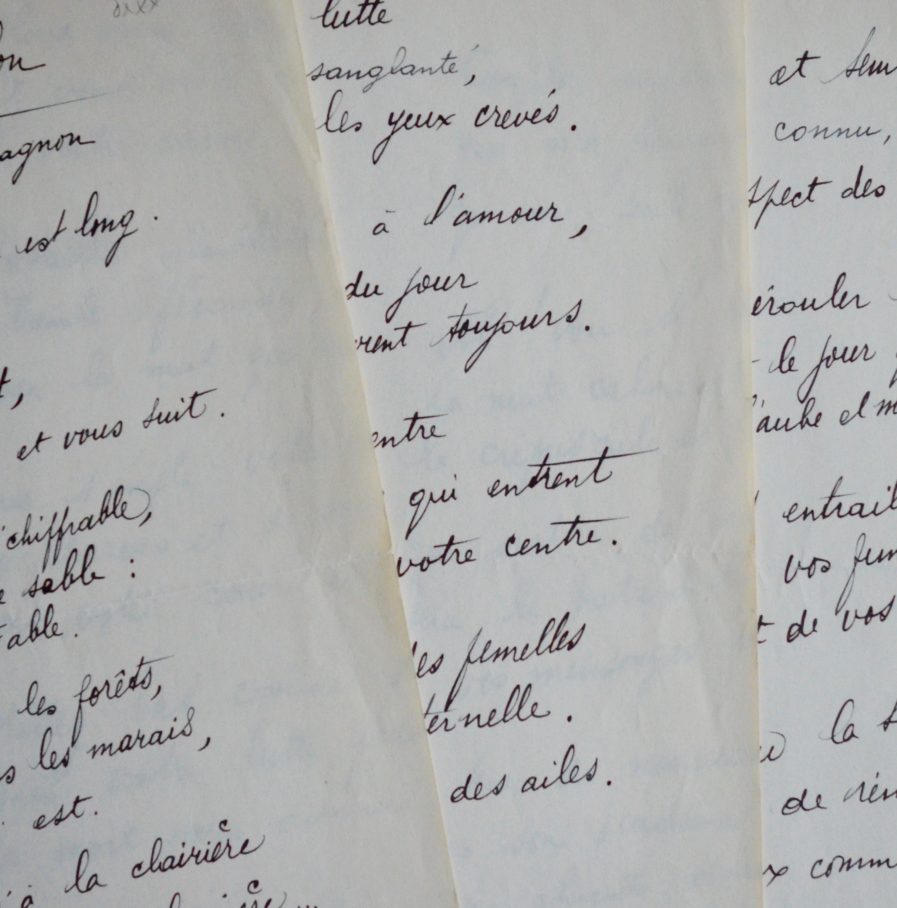 on
agnon
est long.
t,
et vous suit.
chiffrable,
sable :
able.
les forêts,
s les marais,
est.
à la clairière
lutte
sanglante,
les yeux crevés.
à l'amour,
du jour
rent toujours.
entre
qui entrent
votre centre.
les femelles
ternelle.
des ailes.
et sem
connu,
spect des
érouler
le jour
l'aube et m
entrail
vos fem
t de vos
la s
de rén
x comm